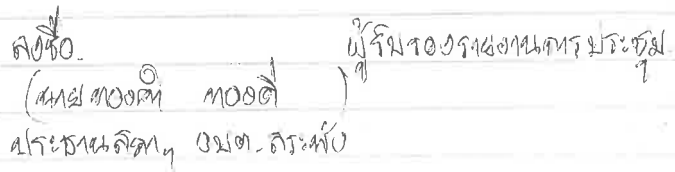 ลงชื่อ. ผู้รับรองรายงานการประชุม
(นายทองคำ ทองดี)
ประธานสภาฯ อบต. สระพัง